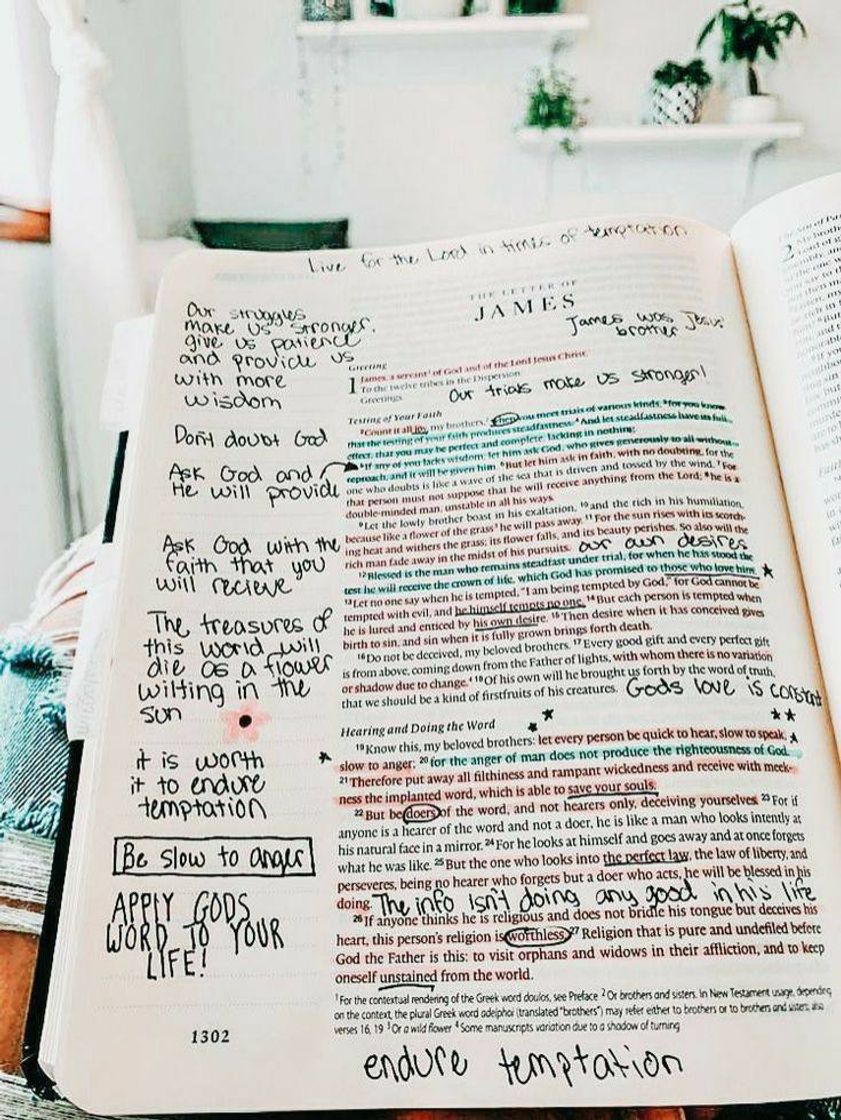 Live for the Lord in times of temptation
THE LETTER OF
JAMES
James was Jesus'
brother
Our struggles
make us stronger,
give us patience
and provide us
with more
wisdom
Don't doubt God
Ask God and
He will provide
Ask God with the
faith that you
will recieve
The treasures of
this world will
die as a flower
wilting in the
sun
it is worth
it to endure
temptation
Be slow to anger
APPLY GODS
WORD TO YOUR
LIFE!
1302
Greeting
1 James, a servant¹ of God and of the Lord Jesus Christ,
To the twelve tribes in the Dispersion:
Greetings.
Our trials make us stronger!
Testing of Your Faith
²Count it all joy, my brothers,² when you meet trials of various kinds, ³for you know
that the testing of your faith produces steadfastness. ⁴And let steadfastness have its full
effect, that you may be perfect and complete, lacking in nothing.
⁵If any of you lacks wisdom, let him ask God, who gives generously to all without
reproach, and it will be given him. ⁶But let him ask in faith, with no doubting, for the
one who doubts is like a wave of the sea that is driven and tossed by the wind. ⁷For
that person must not suppose that he will receive anything from the Lord; ⁸he is a
double-minded man, unstable in all his ways.
⁹Let the lowly brother boast in his exaltation, ¹⁰and the rich in his humiliation,
because like a flower of the grass³ he will pass away. ¹¹For the sun rises with its scorch-
ing heat and withers the grass; its flower falls, and its beauty perishes. So also will the
rich man fade away in the midst of his pursuits. our own desires
¹²Blessed is the man who remains steadfast under trial, for when he has stood the
test he will receive the crown of life, which God has promised to those who love him.
¹³Let no one say when he is tempted, "I am being tempted by God," for God cannot be
tempted with evil, and he himself tempts no one. ¹⁴But each person is tempted when
he is lured and enticed by his own desire. ¹⁵Then desire when it has conceived gives
birth to sin, and sin when it is fully grown brings forth death.
¹⁶Do not be deceived, my beloved brothers. ¹⁷Every good gift and every perfect gift
is from above, coming down from the Father of lights, with whom there is no variation
or shadow due to change.⁴ ¹⁸Of his own will he brought us forth by the word of truth,
that we should be a kind of firstfruits of his creatures. Gods love is constant
Hearing and Doing the Word
¹⁹Know this, my beloved brothers: let every person be quick to hear, slow to speak,
slow to anger; ²⁰for the anger of man does not produce the righteousness of God.
²¹Therefore put away all filthiness and rampant wickedness and receive with meek-
ness the implanted word, which is able to save your souls.
²²But be doers of the word, and not hearers only, deceiving yourselves. ²³For if
anyone is a hearer of the word and not a doer, he is like a man who looks intently at
his natural face in a mirror. ²⁴For he looks at himself and goes away and at once forgets
what he was like. ²⁵But the one who looks into the perfect law, the law of liberty, and
perseveres, being no hearer who forgets but a doer who acts, he will be blessed in his
doing. The info isn't doing any good in his life
²⁶If anyone thinks he is religious and does not bridle his tongue but deceives his
heart, this person's religion is worthless. ²⁷Religion that is pure and undefiled before
God the Father is this: to visit orphans and widows in their affliction, and to keep
oneself unstained from the world.
¹For the contextual rendering of the Greek word doulos, see Preface ²Or brothers and sisters. In New Testament usage, depending
on the context, the plural Greek word adelphoi (translated "brothers") may refer either to brothers or to brothers and sisters; also
verses 16, 19 ³Or a wild flower ⁴Some manuscripts variation due to a shadow of turning
endure temptation